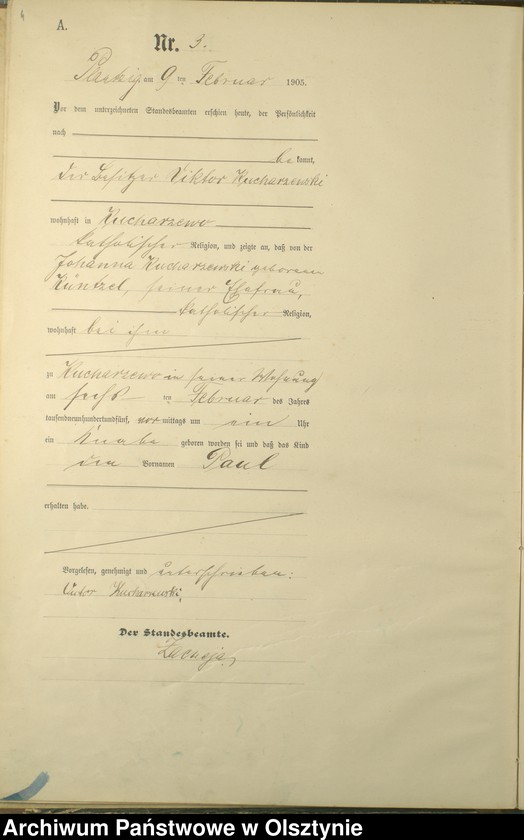 4
A.
Nr. 3.
am 9 ten Februar 1905.
Vor dem unterzeichneten Standesbeamten erschien heute, der Persönlichkeit
nach
bekannt,
der Besitzer Viktor Kucharzewski
wohnhaft in Kucharzewo
katholischer Religion, und zeigte an, daß von der
Johanna Kucharzewski geborenen
Küntzel, seiner Ehefrau,
katholischer Religion,
wohnhaft bei ihm
zu Kucharzewo in seiner Wohnung
am sechsten Februar des Jahres
tausendneunhundertundfünf, vormittags um ein Uhr
ein Knabe geboren worden sei und daß das Kind
den Vornamen Paul
erhalten habe.
Vorgelesen, genehmigt und unterschrieben:
Victor Kucharzewski,
Der Standesbeamte.
Archiwum Państwowe w Olsztynie